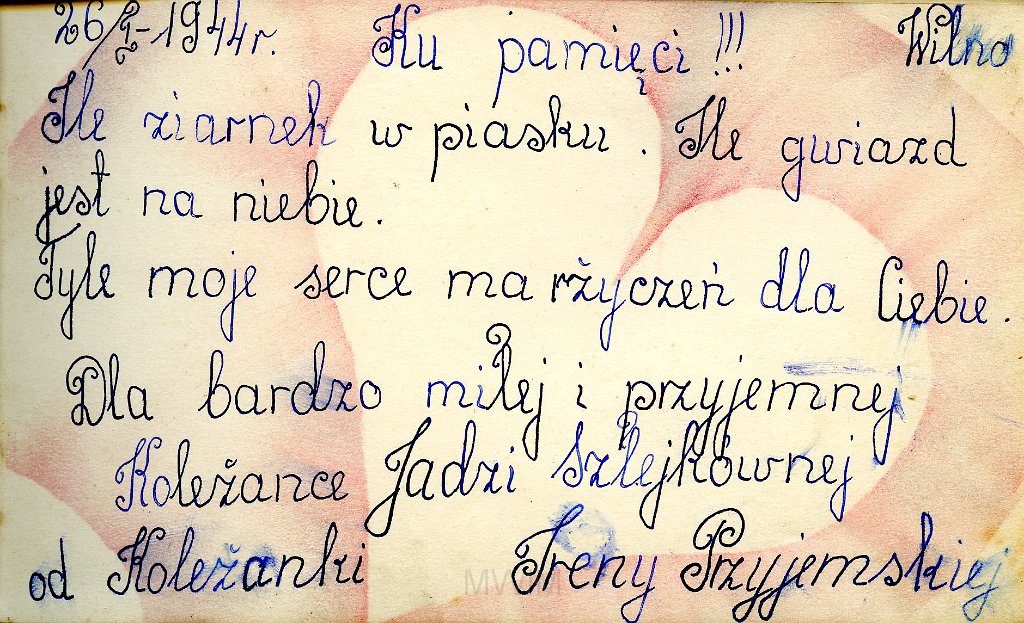 26/I-1944r. Ku pamięci!!! Wilno
Ile ziarnek w piasku. Ile gwiazd
jest na niebie.
Tyle moje serce ma rżyczeń dla Ciebie.
Dla bardzo miłej i przyjemnej
Koleżance Jadzi Szlejkównej
od Koleżanki Ireny Przyjemskiej